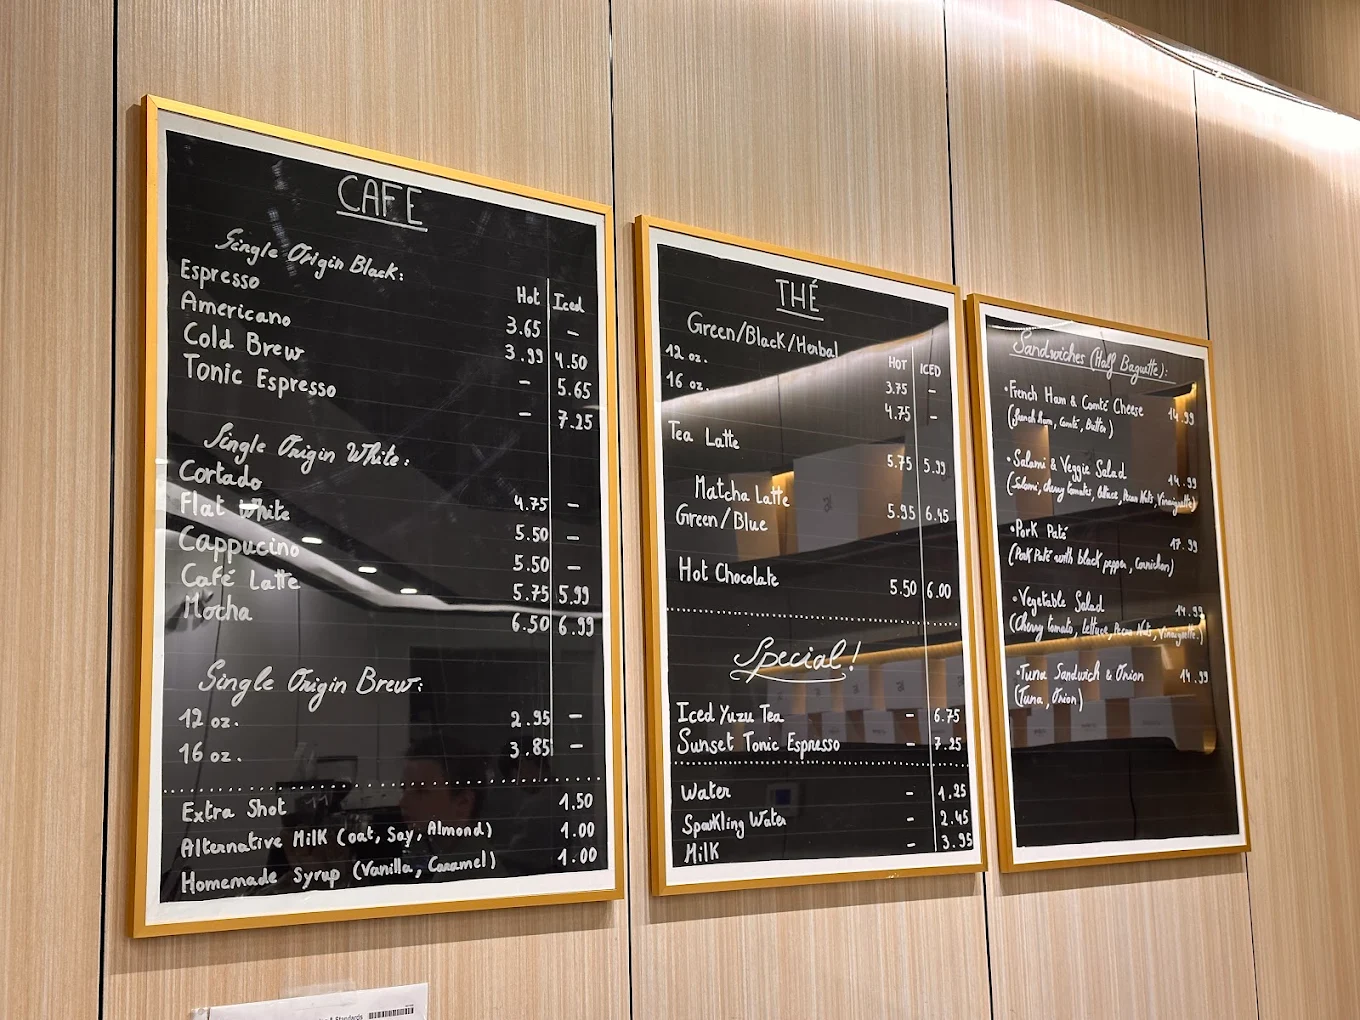 CAFE
Single Origin Black:
Hot Iced
Espresso 3.65 –
Americano 3.99 4.50
Cold Brew – 5.65
Tonic Espresso – 7.25
Single Origin White:
Cortado 4.75 –
Flat White 5.50 –
Cappucino 5.50 –
Café Latte 5.75 5.99
Mocha 6.50 6.99
Single Origin Brew:
12 oz. 2.95 –
16 oz. 3.85 –
Extra Shot 1.50
Alternative Milk (oat, Soy, Almond) 1.00
Homemade Syrup (Vanilla, Caramel) 1.00
THÉ
Green/Black/Herbal
HOT ICED
12 oz. 3.75 –
16 oz. 4.75 –
Tea Latte 5.75 5.99
Matcha Latte
Green/Blue 5.95 6.45
Hot Chocolate 5.50 6.00
Special!
Iced Yuzu Tea – 6.75
Sunset Tonic Espresso – 7.25
Water – 1.25
Sparkling Water – 2.45
Milk – 3.95
Sandwiches (Half Baguette):
•French Ham & Comté Cheese 14.99
(french ham, comté, Butter)
•Salami & Veggie Salad 14.99
(Salami, cherry tomatoes, lettuce, Pecan Nuts, Vinaigrette)
•Pork Paté 17.99
(Pork Paté with black pepper, Cornichon)
•Vegetable Salad 14.99
(Cherry tomato, lettuce, Pecan Nuts, Vinaigrette.)
•Tuna Sandwich & Onion 14.99
(Tuna, Onion)
& Standards